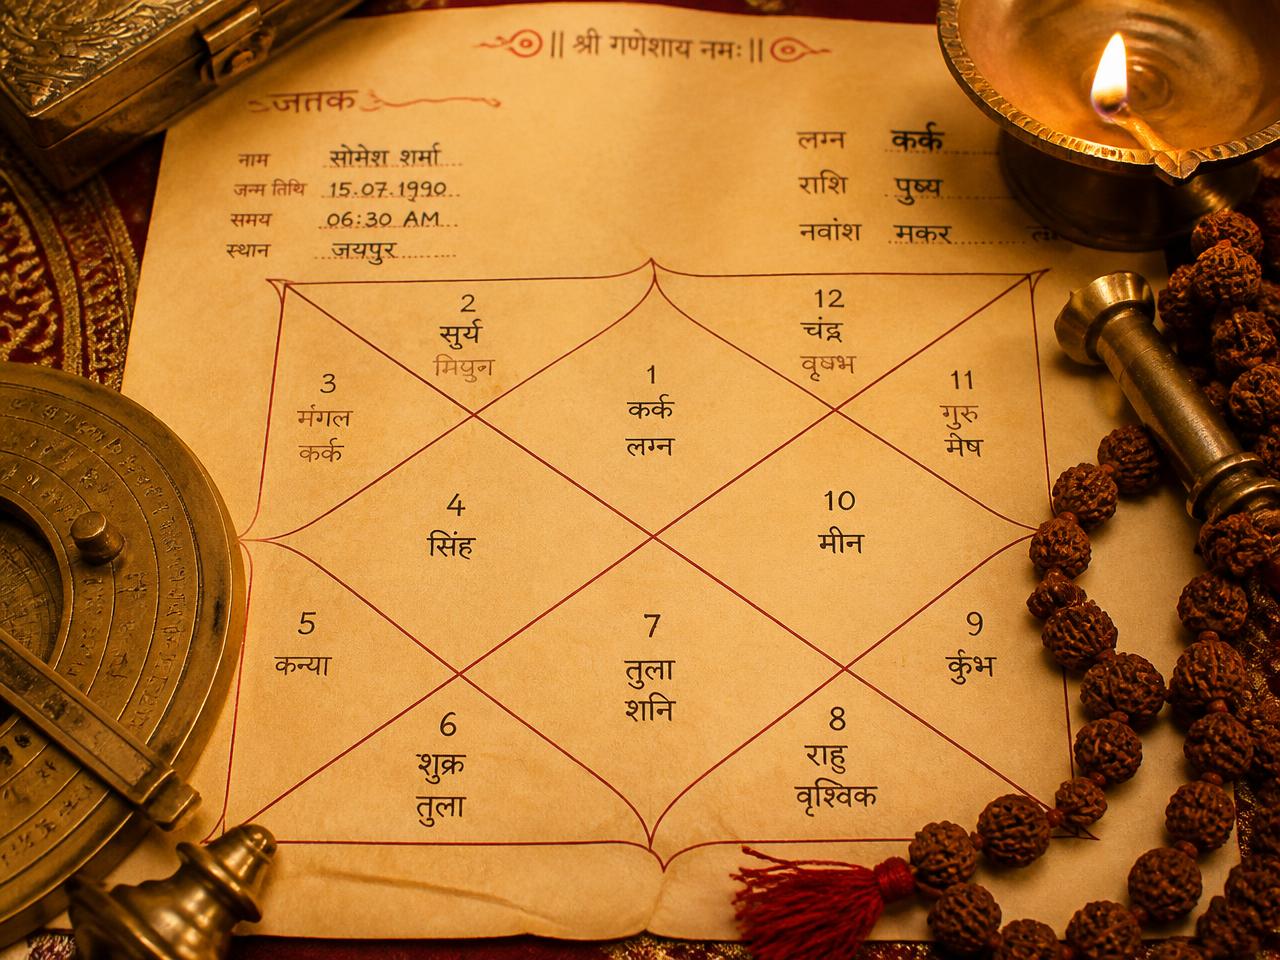 || श्री गणेशाय नमः ||
जातक
नाम सोमेश शर्मा
जन्म तिथि 15.07.1990
समय 06:30 AM
स्थान जयपुर
लग्न कर्क
राशि पुष्य
नवांश मकर
2
सुर्य
मिथुन
12
चंद्र
वृषभ
3
मंगल
कर्क
1
कर्क
लग्न
11
गुरु
मेष
4
सिंह
10
मीन
5
कन्या
7
तुला
शनि
9
र्कुभ
6
शुक्र
तुला
8
राहु
वृश्विक